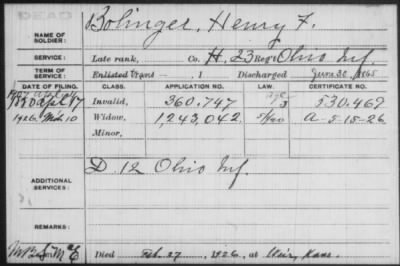 DEAD
NAME OF SOLDIER: Bolinger, Henry F.
SERVICE: Late rank, Co. H, 23 Reg't Ohio Inf.
TERM OF SERVICE: Enlisted , 1 Discharged June 30, 1865
DATE OF FILING. CLASS. APPLICATION NO. LAW. CERTIFICATE NO.
1880 Apl. 17 Invalid, 360.747 530.469
1926. Mch 10 Widow, 1,243,042. A-5-15-26
Minor,
ADDITIONAL SERVICES: D. 12 Ohio Inf.
REMARKS:
Died Feb. 27, 1926, at Weir, Kans.